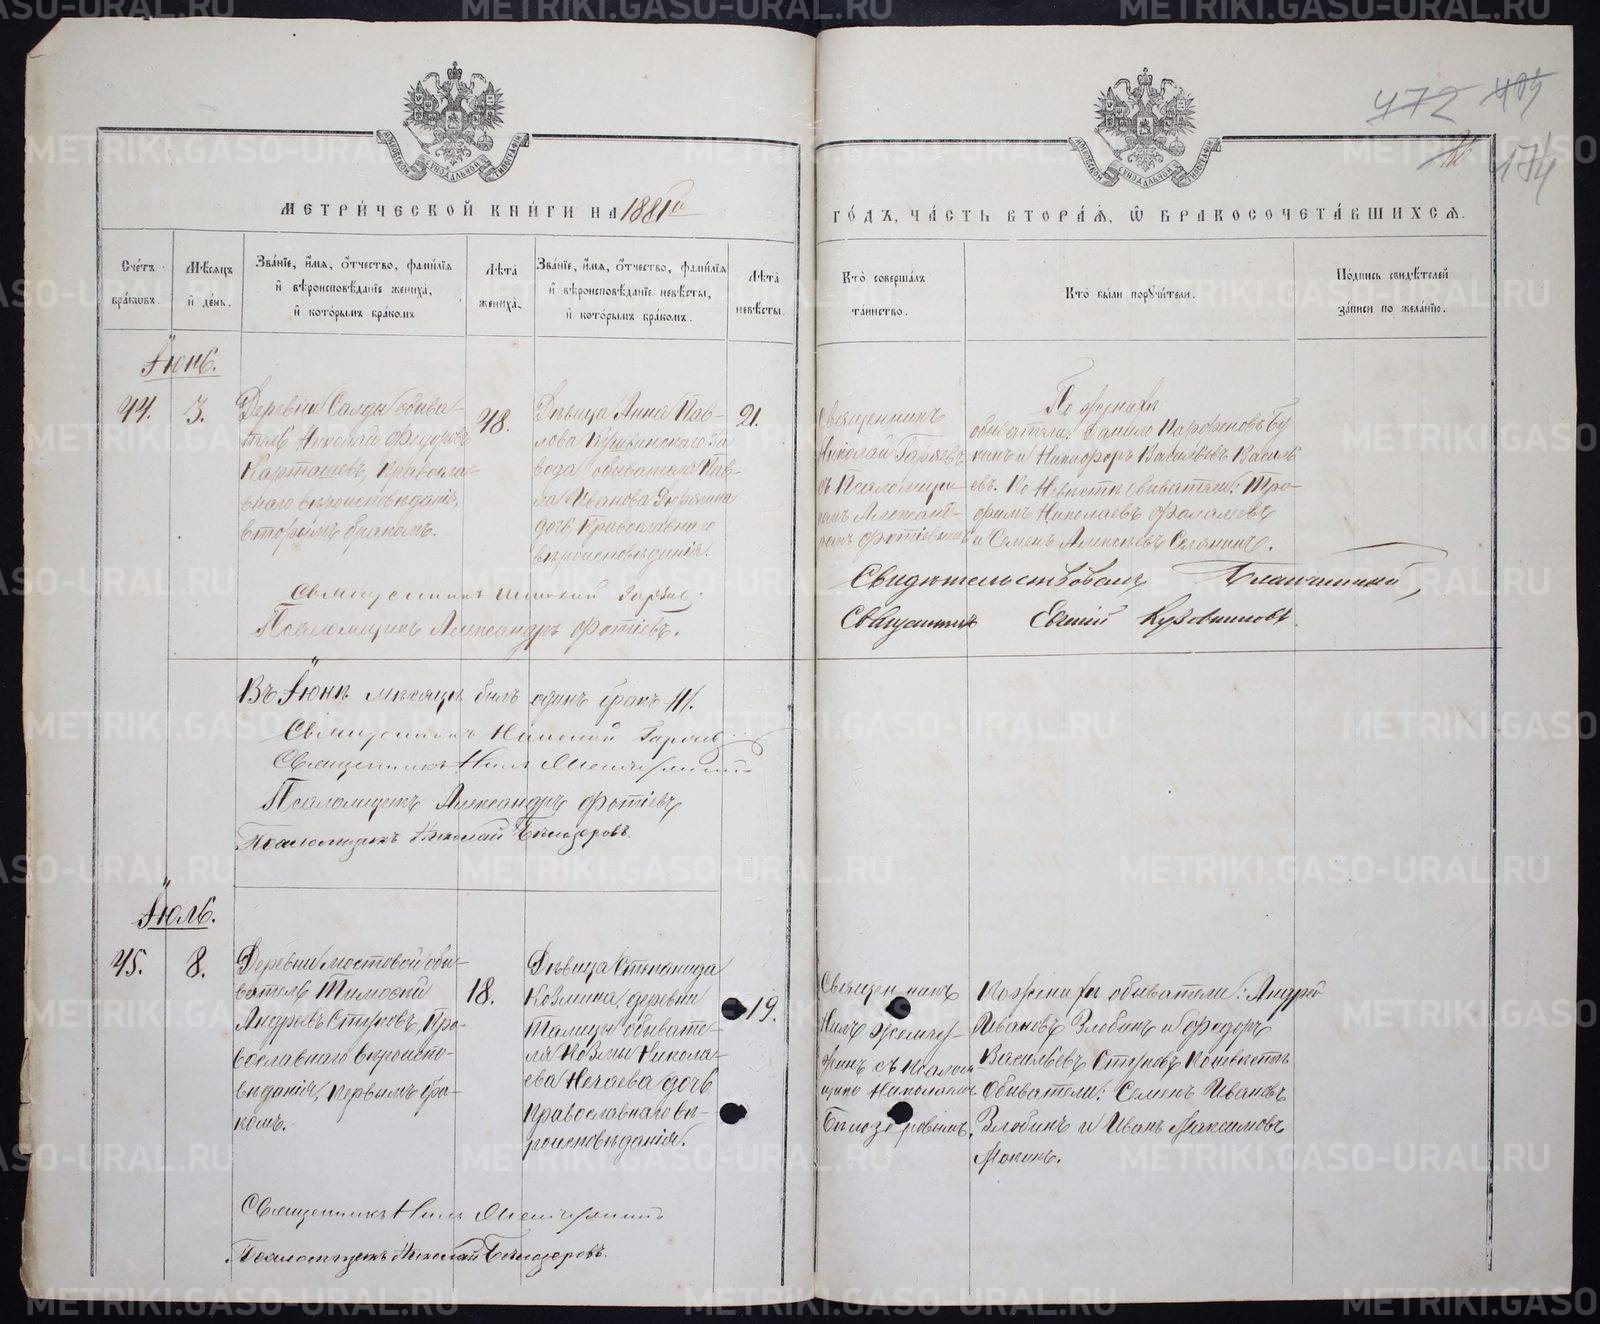 МЕТРИЧЕСКОЙ КНИГИ НА 1881й ГОДЪ, ЧАСТЬ ВТОРАЯ, Ѡ БРАКОСОЧЕТАВШИХСЯ.
472 174
Счетъ браковъ.
Мѣсяцъ и день.
Званіе, имя, отчество, фамилія и вѣроисповѣданіе жениха, и которымъ бракомъ
Лѣта жениха.
Званіе, имя, отчество, фамилія и вѣроисповѣданіе невѣсты, и которымъ бракомъ.
Лѣта невѣсты.
Кто совершалъ таинство.
Кто были поручители.
Подпись свидѣтелей записи по желанію.
Іюнь.
44.
3.
Деревни Салды обыва-
тель Николай Федоровъ
Карташевъ, Правосла-
внаго вѣроисповѣданія,
вторымъ бракомъ.
48.
Дѣвица Анна Пав-
лова Кушвинскаго За-
вода обывателя Пав-
ла Иванова
дочь Православнаго
вѣроисповѣданія.
21.
Священникъ
Николай Гаряевъ
съ Псаломщи-
комъ Александ-
ромъ Фотіевымъ
По женихѣ
обыватели: Данило Парфеновъ Бу
кинъ и Никифоръ Васильевъ Василь
евъ. По Невѣстѣ обыватели: Тро-
фимъ Николаевъ Фалалеевъ
и Семенъ Алексѣевъ Селянинъ.
Священникъ Николай Гаряевъ.
Псаломщикъ Александръ Фотіевъ.
Свидѣтельствовалъ Благочинный,
Священникъ Евгеній Кузовниковъ.
Въ Іюнѣ мѣсяцѣ былъ одинъ бракъ /1/.
Священникъ Николай Гаряевъ
Священникъ Нилъ
Псаломщикъ Александръ Фотіевъ
Псаломщикъ Николай Бѣлозеровъ.
Іюль.
45.
8.
Деревни Мостовой обы-
ватель Тимофей
Андреевъ Стуковъ, Пра-
вославнаго вѣроиспо-
вѣданія, первымъ бра-
комъ.
18.
Дѣвица Степанида
Козмина, деревни
Талицы обывате-
ля Козмы Никола-
ева Нечаева дочь
Православнаго вѣ-
роисповѣданія.
19.
Священникъ
Нилъ Жемчу-
жинъ съ Псалом
щикомъ Николаемъ
Бѣлозеровымъ.
По женихѣ обыватели: Андрей
Ивановъ Злобинъ и Федоръ
Васильевъ Стуковъ По невѣстѣ
Обыватели: Семенъ Ивановъ
Злобинъ и Иванъ Максимовъ
Мокинъ.
Священникъ Нилъ
Псаломщикъ Николай Бѣлозеровъ.
METRIKI.GASO-URAL.RU